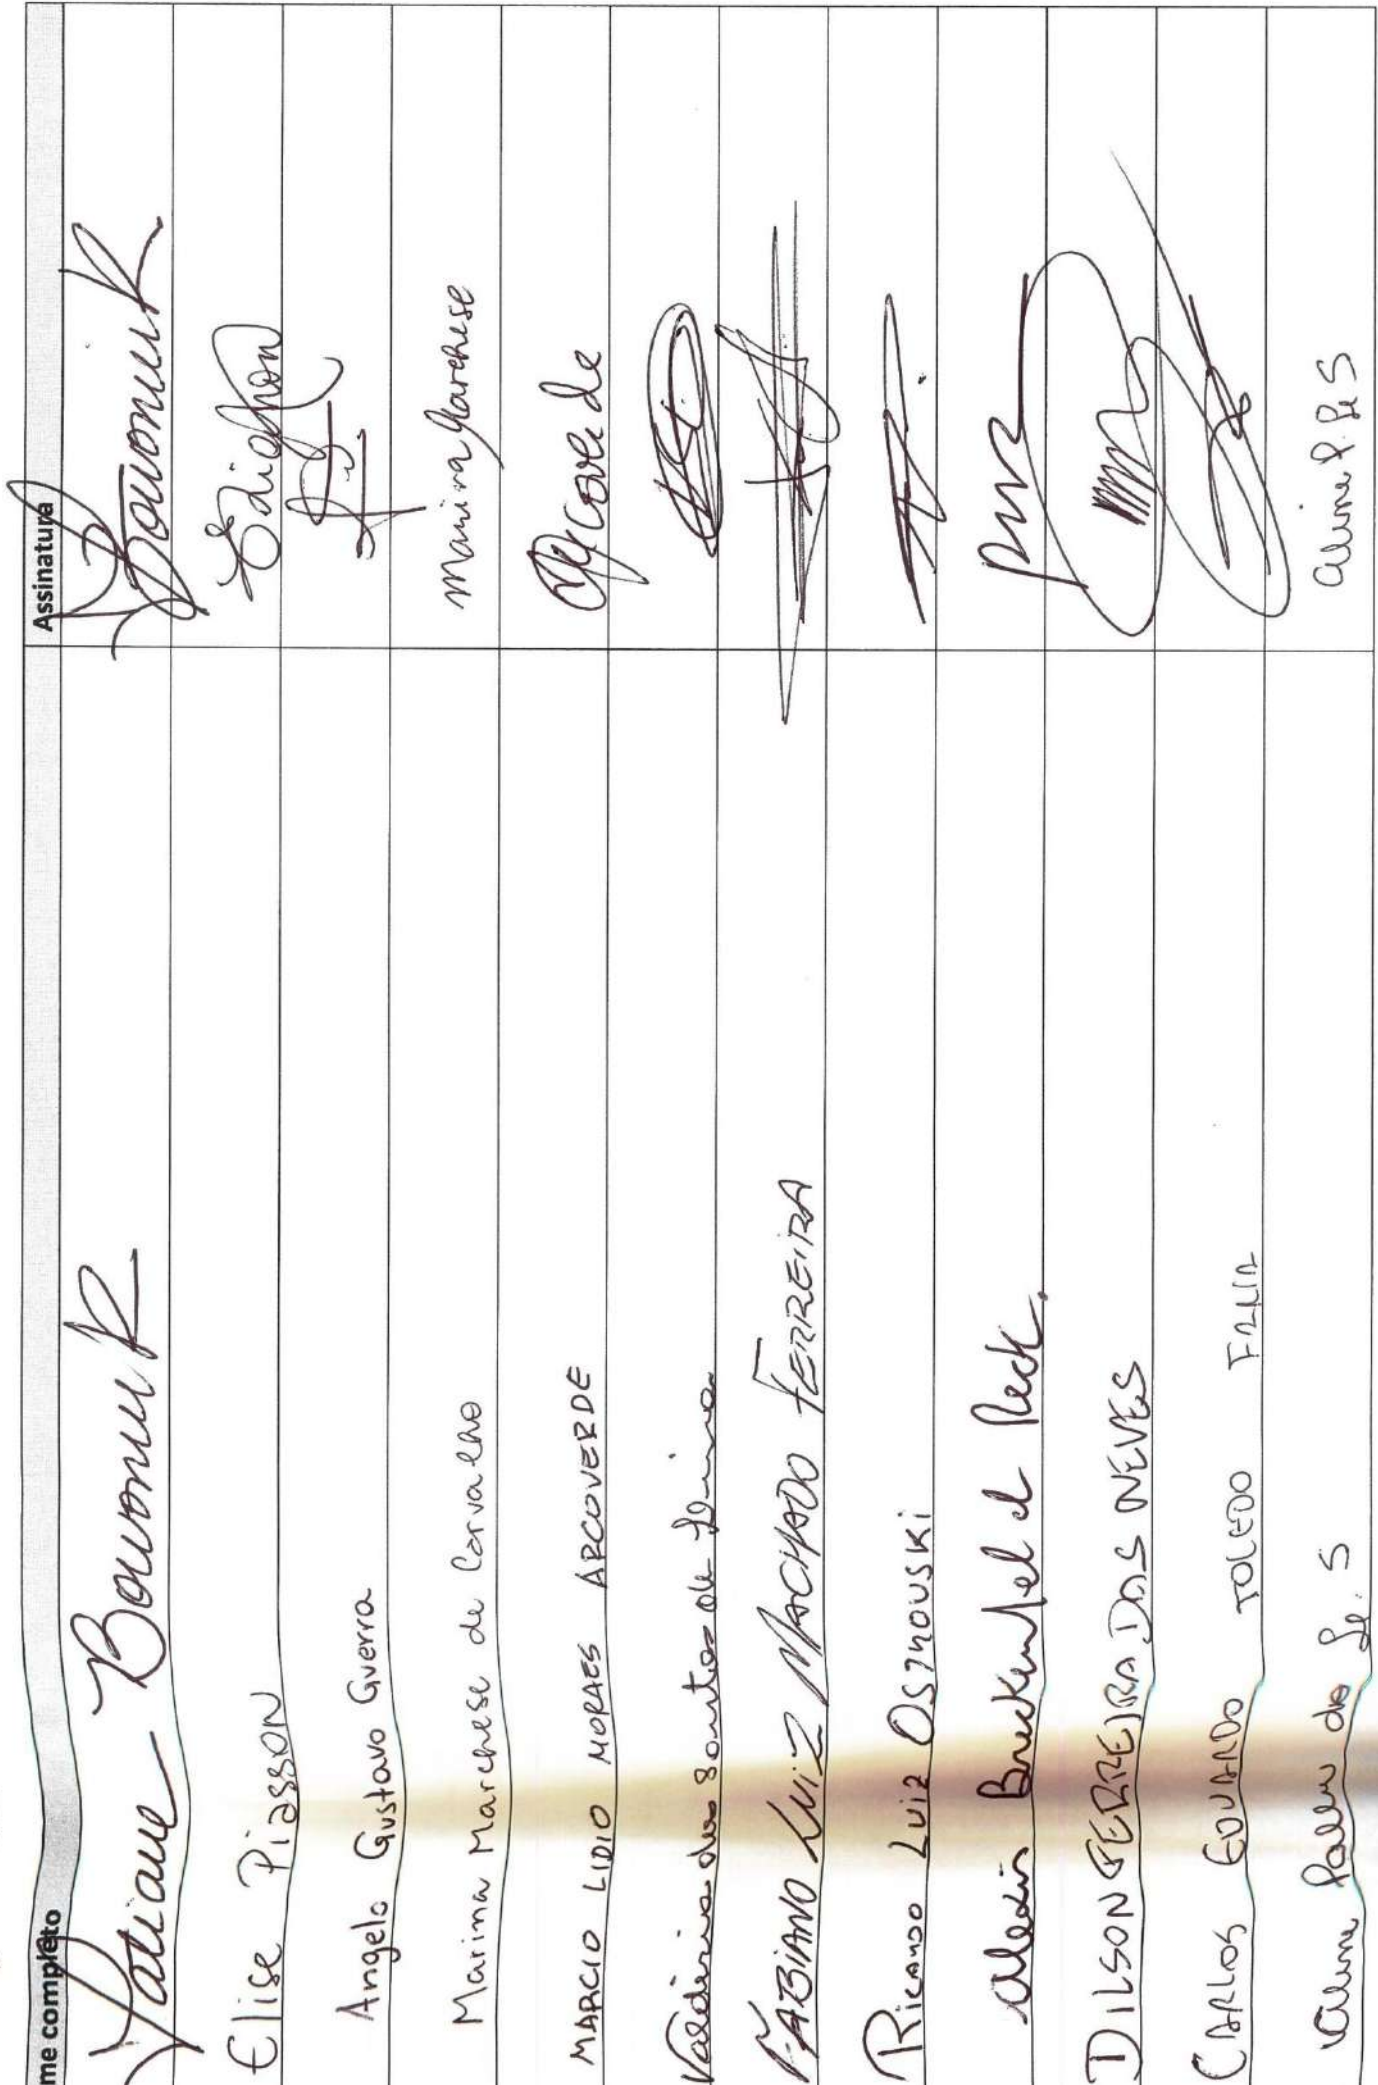 me completo Assinatura
Tatiane BowonuR BowonuR
Elise Piasson
Angelo Gustavo Guerra
Marina Marchese de Carvalho Marina Marchese
MARCIO LIDIO MORAES ARCOVERDE Arcoverde
Valdiria dos Santos de Lima
FABIANO LUIZ MACHADO FERREIRA
Ricardo Luiz Osinouski
d Reck
DILSON FERREIRA DAS NEVES
CARLOS EDUARDO TOLEDO FARIA
Aline de S Aline P. de S